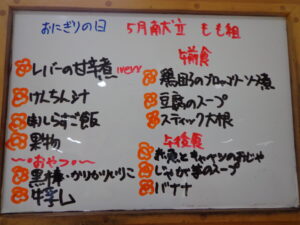 おにぎりの日 5月献立 もも組
レバーの甘辛煮
けんちん汁
刺しらすご飯
果物
〜おやつ〜
黒棒・かりかりいりこ
牛乳
午前食
鶏団子のブロッコリーソース煮
豆腐のスープ
スティック大根
午後食
松魚とキャベツのおじや
じゃが芋のスープ
バナナ